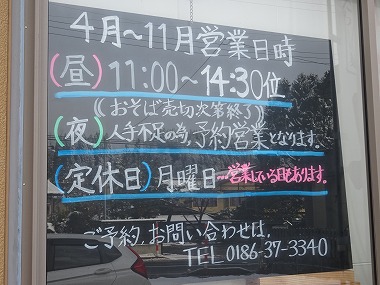 4月～11月営業日時
(昼) 11:00～14:30位
《おそば売切次第終了》
(夜) 人手不足の為,予約営業となります。
(定休日) 月曜日…営業している日もあります。
ご予約,お問い合わせは,
TEL 0186-37-3340